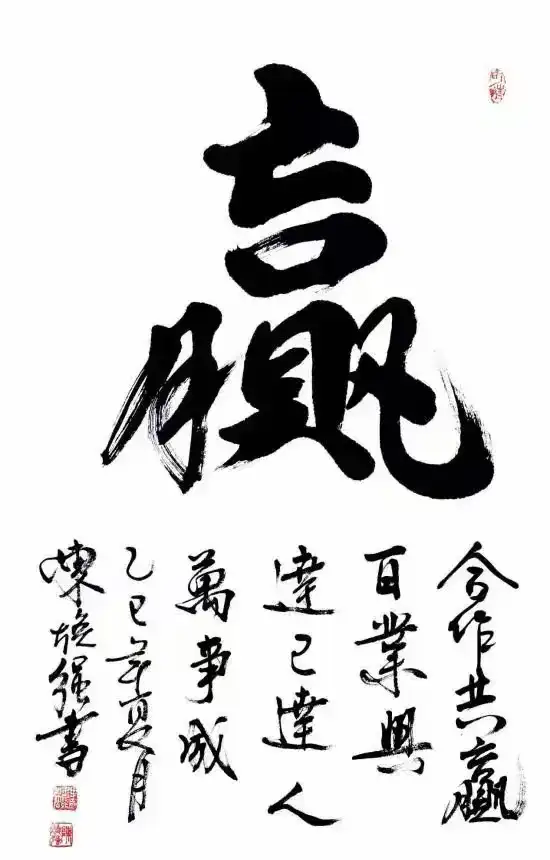 贏
合作共贏
百業興
達己達人
萬事成
乙巳年夏月
陳焕强書